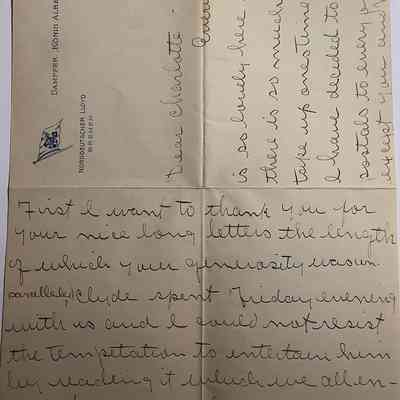 DAMPFER „KÖNIG ALBE
NORDDEUTSCHER LLOYD
BREMEN
Dear Charlotte -
Over
is so lovely here
there is so much
take up ones time
I have decided to
postals to every
except you and
First I want to thank you for
your nice long letters the length
of which your generosity was un
paralleled Clyde spent Friday evening
with us and I could not resist
the temptation to entertain him
by reading it which we all en-